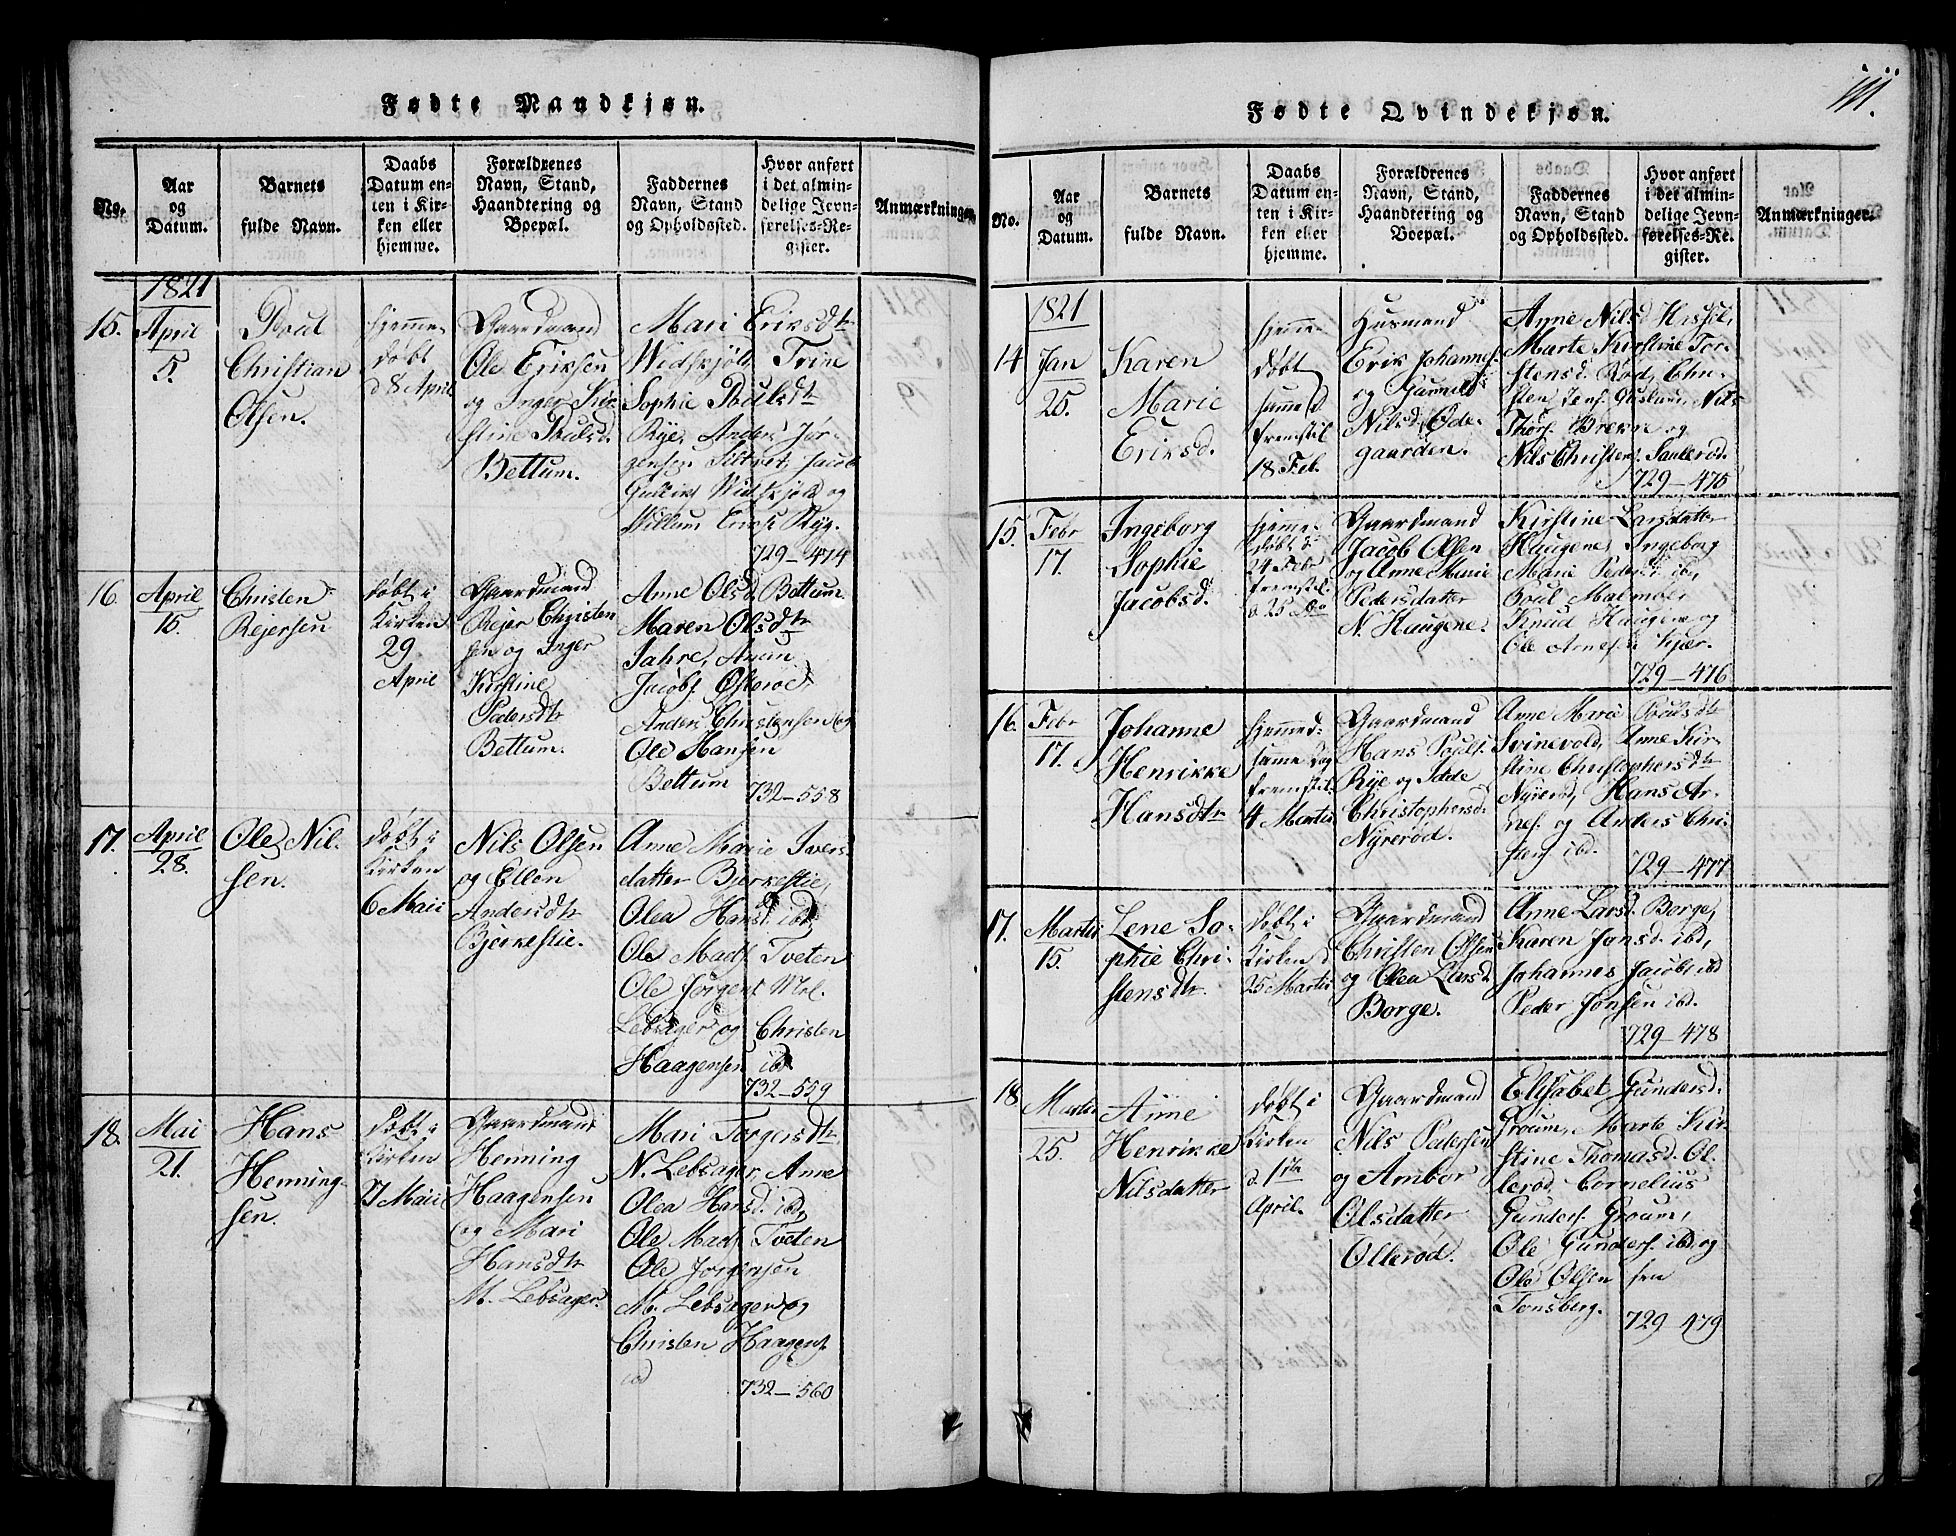 Fødte Mandkjøn.
No.
Aar
og
Datum.
Barnets
fulde Navn.
Daabs
Datum en-
ten i Kir-
ken eller
hjemme.
Forældrenes
Navn, Stand,
Haandtering og
Boepæl.
Faddernes
Navn, Stand
og Opholdssted.
Hvor anført
i det almin-
delige Jevn-
førelses-Re-
gister.
Anmærkninger.
1821
15.
April
5.
Poul
Christian
Olsen.
hjemme-
døbt
d 8 April
Gaardmand
Ole Eriksen
og Inger Kir
stine Poulsd.
Bettum.
Mari Eriksdtr
Widskjöld Trine
Sophie Poulsdtr
Rye, Anders Jør-
gensen Siltvet, Jacob
Gulliks Widskjöld og
Willum Eriks Ryg.
729-474
16
April
15.
Christen
Rejersen
døbt i
Kirken
29
April
Gaardmand
Rejer Christen
sen og Inger
Kirstine
Pedersdtr
Bettum.
Anne Olsd Bettum
Maren Olsdtr
Jahre,
Jacobs. Østerød,
Anders Christensen og
Ole Hansen
Bettum
732-558
17.
April
28.
Ole Nil-
sen.
døbt i
Kirken
6 Maii
Nils Olsen
og Ellen
Andersdtr
Bjerkestie.
Anne Marie Ivers-
datter Bjerkestie,
Olea Hansd. ibd,
Ole Mads. Tveten
Ole Jørgens M.
Lebsager og Christen
Haagensen ibd
732-559
18.
Mai
21.
Hans
Henning-
sen.
Døbt i
Kirken
27 Maii
Gaardmand
Henning
Haagensen
og Mari
Hansdtr
M. Lebsager.
Mari Torgersdtr
N. Lebsager, Anne
Olea Hansd. ibd,
Ole Mads. Tveten
Ole Jørgensen
M. Lebsager og
Christen Haagens
ibd
732-560
Fødte Qvindekjøn.
111.
No.
Aar
og
Datum.
Barnets
fulde Navn.
Daabs
Datum en-
ten i Kir-
ken eller
hjemme.
Forældrenes
Navn, Stand,
Haandtering og
Boepæl.
Faddernes
Navn, Stand
og Opholdssted.
Hvor anført
i det almin-
delige Jevn-
førelses-Re-
gister.
Anmærkninger.
1821
14
Jan
25.
Karen
Marie
Eriksd.
hjemme-
døbt
samme d
fremstil
18 Feb.
Husmand
Erik Johannes.
og Gunnild
Nilsd. Øde-
gaarden.
Anne Nilsd
Marte Kirstine Tor-
stensd. Rød, Chri-
sten Jens. Nils
Thors. Brekke og
Nils Christens. Sanlerød.
729-475
15.
Febr
17.
Ingeborg
Sophie
Jacobsd.
hjemme-
døbt d
24 Febr
fremstil.
d 25
Gaardmand
Jacob Olsen
og Anne Marie
Pedersdatter
N. Haugene.
Kirstine Larsdatter
Haugene, Ingeborg
Marie Pedersd. ibd,
Malmøer
Knud Haugene og
Ole Arnes. Kjær.
729-476
16.
Febr
17.
Johanne
Henrikke
Hansdtr
hjemmed-
samme Dag
fremstil.
4 Martii
Gaardmand
Hans Pouls.
Rye og Idde
Christophersd.
Nyrerød.
Anne Marie Poulsdtr
Svinevold, Anne Kir-
stine Christophersdtr
Nyrerød, Hans Ar-
nes. og Anders Chri-
stens ibd.
729-477
17.
Martii
15.
Lene So-
phie Chri-
stensdtr.
døbt i
Kirken d
25 Martii.
Gaardmand
Christen Olsen
og Olea Larsd.
Borge.
Anne Larsd. Borge,
Karen Jonsd. ibd,
Johannes Jacobs ibd
Peder Jonsen ibd.
729-478
18
Martii
25.
Anne
Henrikke
Nilsdatter
døbt i
Kirken
d. 1ste
April.
Gaardmand
Nils Pedersen
og Ambor
Olsdatter
Ollerød.
Elisabet Gundersd.
Groum, Marte Kir-
stine Thomasd. Ol-
lerød, Cornelius
Gunders. Groum,
Ole Gunders. ibd, og
Ole Olsen
Tønsberg.
729-479